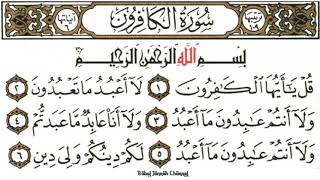 ترتيبها ١٠٩ سُورَةُ الْكَافِرُونَ آياتها ٦
بِسْمِ اللَّهِ الرَّحْمَٰنِ الرَّحِيمِ
قُلْ يَـٰٓأَيُّهَا ٱلْكَـٰفِرُونَ ١ لَآ أَعْبُدُ مَا تَعْبُدُونَ ٢
وَلَآ أَنتُمْ عَـٰبِدُونَ مَآ أَعْبُدُ ٣ وَلَآ أَنَا۠ عَابِدٌ مَّا عَبَدتُّمْ ٤
وَلَآ أَنتُمْ عَـٰبِدُونَ مَآ أَعْبُدُ ٥ لَكُمْ دِينُكُمْ وَلِىَ دِينِ ٦
Babul Jannah Channel